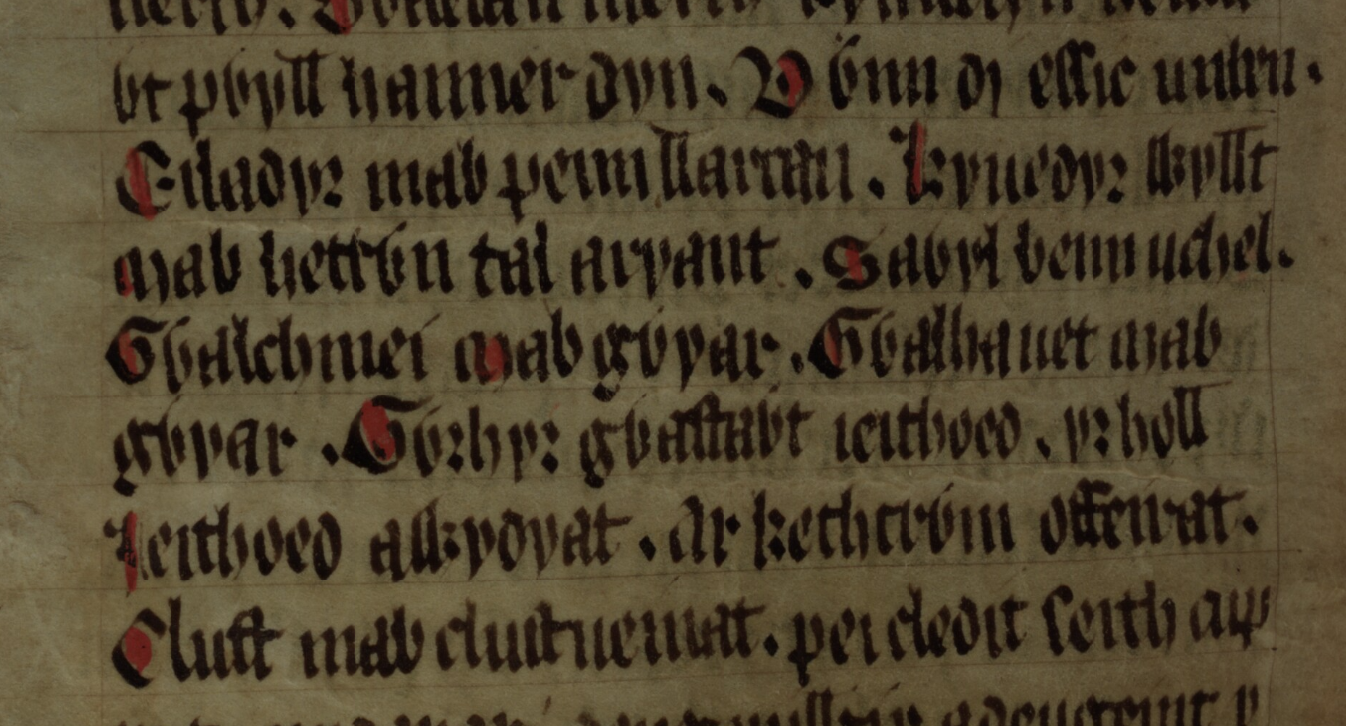 ỽt pỽyll hanner dyn. Dỽnn di essic unben.
Eiladyr mab penn llarcan. kynedyr wyllt
mab hettỽn tal aryant. Saỽyl benn uchel.
Gỽalchmei mab gỽyar. Gỽalhauet mab
gỽyar. Gỽrhyr gỽastaỽt ieithoed. yr holl
Ieithoed awydyat. Ar kethtrỽm offeirat.
Clust mab clustueinat. pei cledit seith